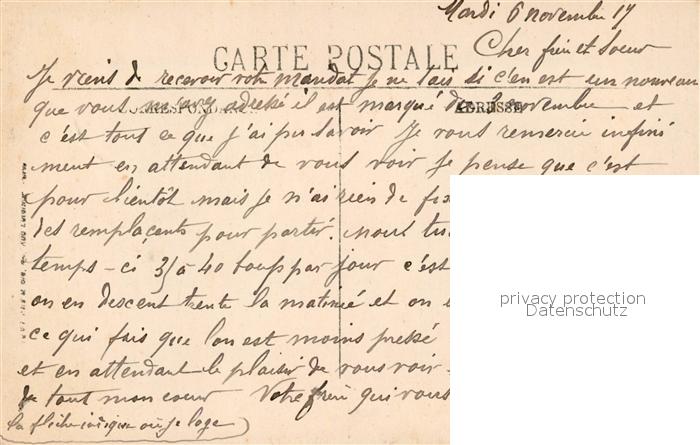 Mardi 6 novembre 17
CARTE POSTALE
Cher frère et Soeur
Je viens de recevoir votre mandat Je ne sais si c'en est un nouveau
CORRESPONDANCE
ADRESSE
que vous m'avez adressé il est marqué du 2 novembre et
c'est tout ce que j'ai pu savoir Je vous remercie infini
ment en attendant de vous voir Je pense que c'est
pour bientôt mais je n'ai rien de fix
des remplaçants pour partir. nous tu
temps-ci 35 à 40 bœufs par jour c'est
on en descent trente la matinée et on
ce qui fais que l'on est moins pressé
et en attendant le plaisir de vous voir
de tout mon coeur Votre frère qui vous
la flèche indique où je loge
privacy protection
Datenschutz